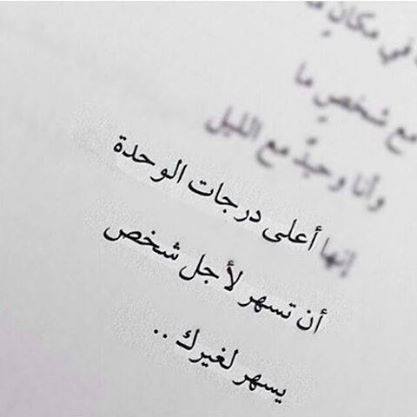 في مكان
مع شخصٍ ما
وأنا وحيدٌ مع الليل
إنها أعلى درجات الوحدة
أن تسهر لأجل شخص
يسهر لغيرك ..